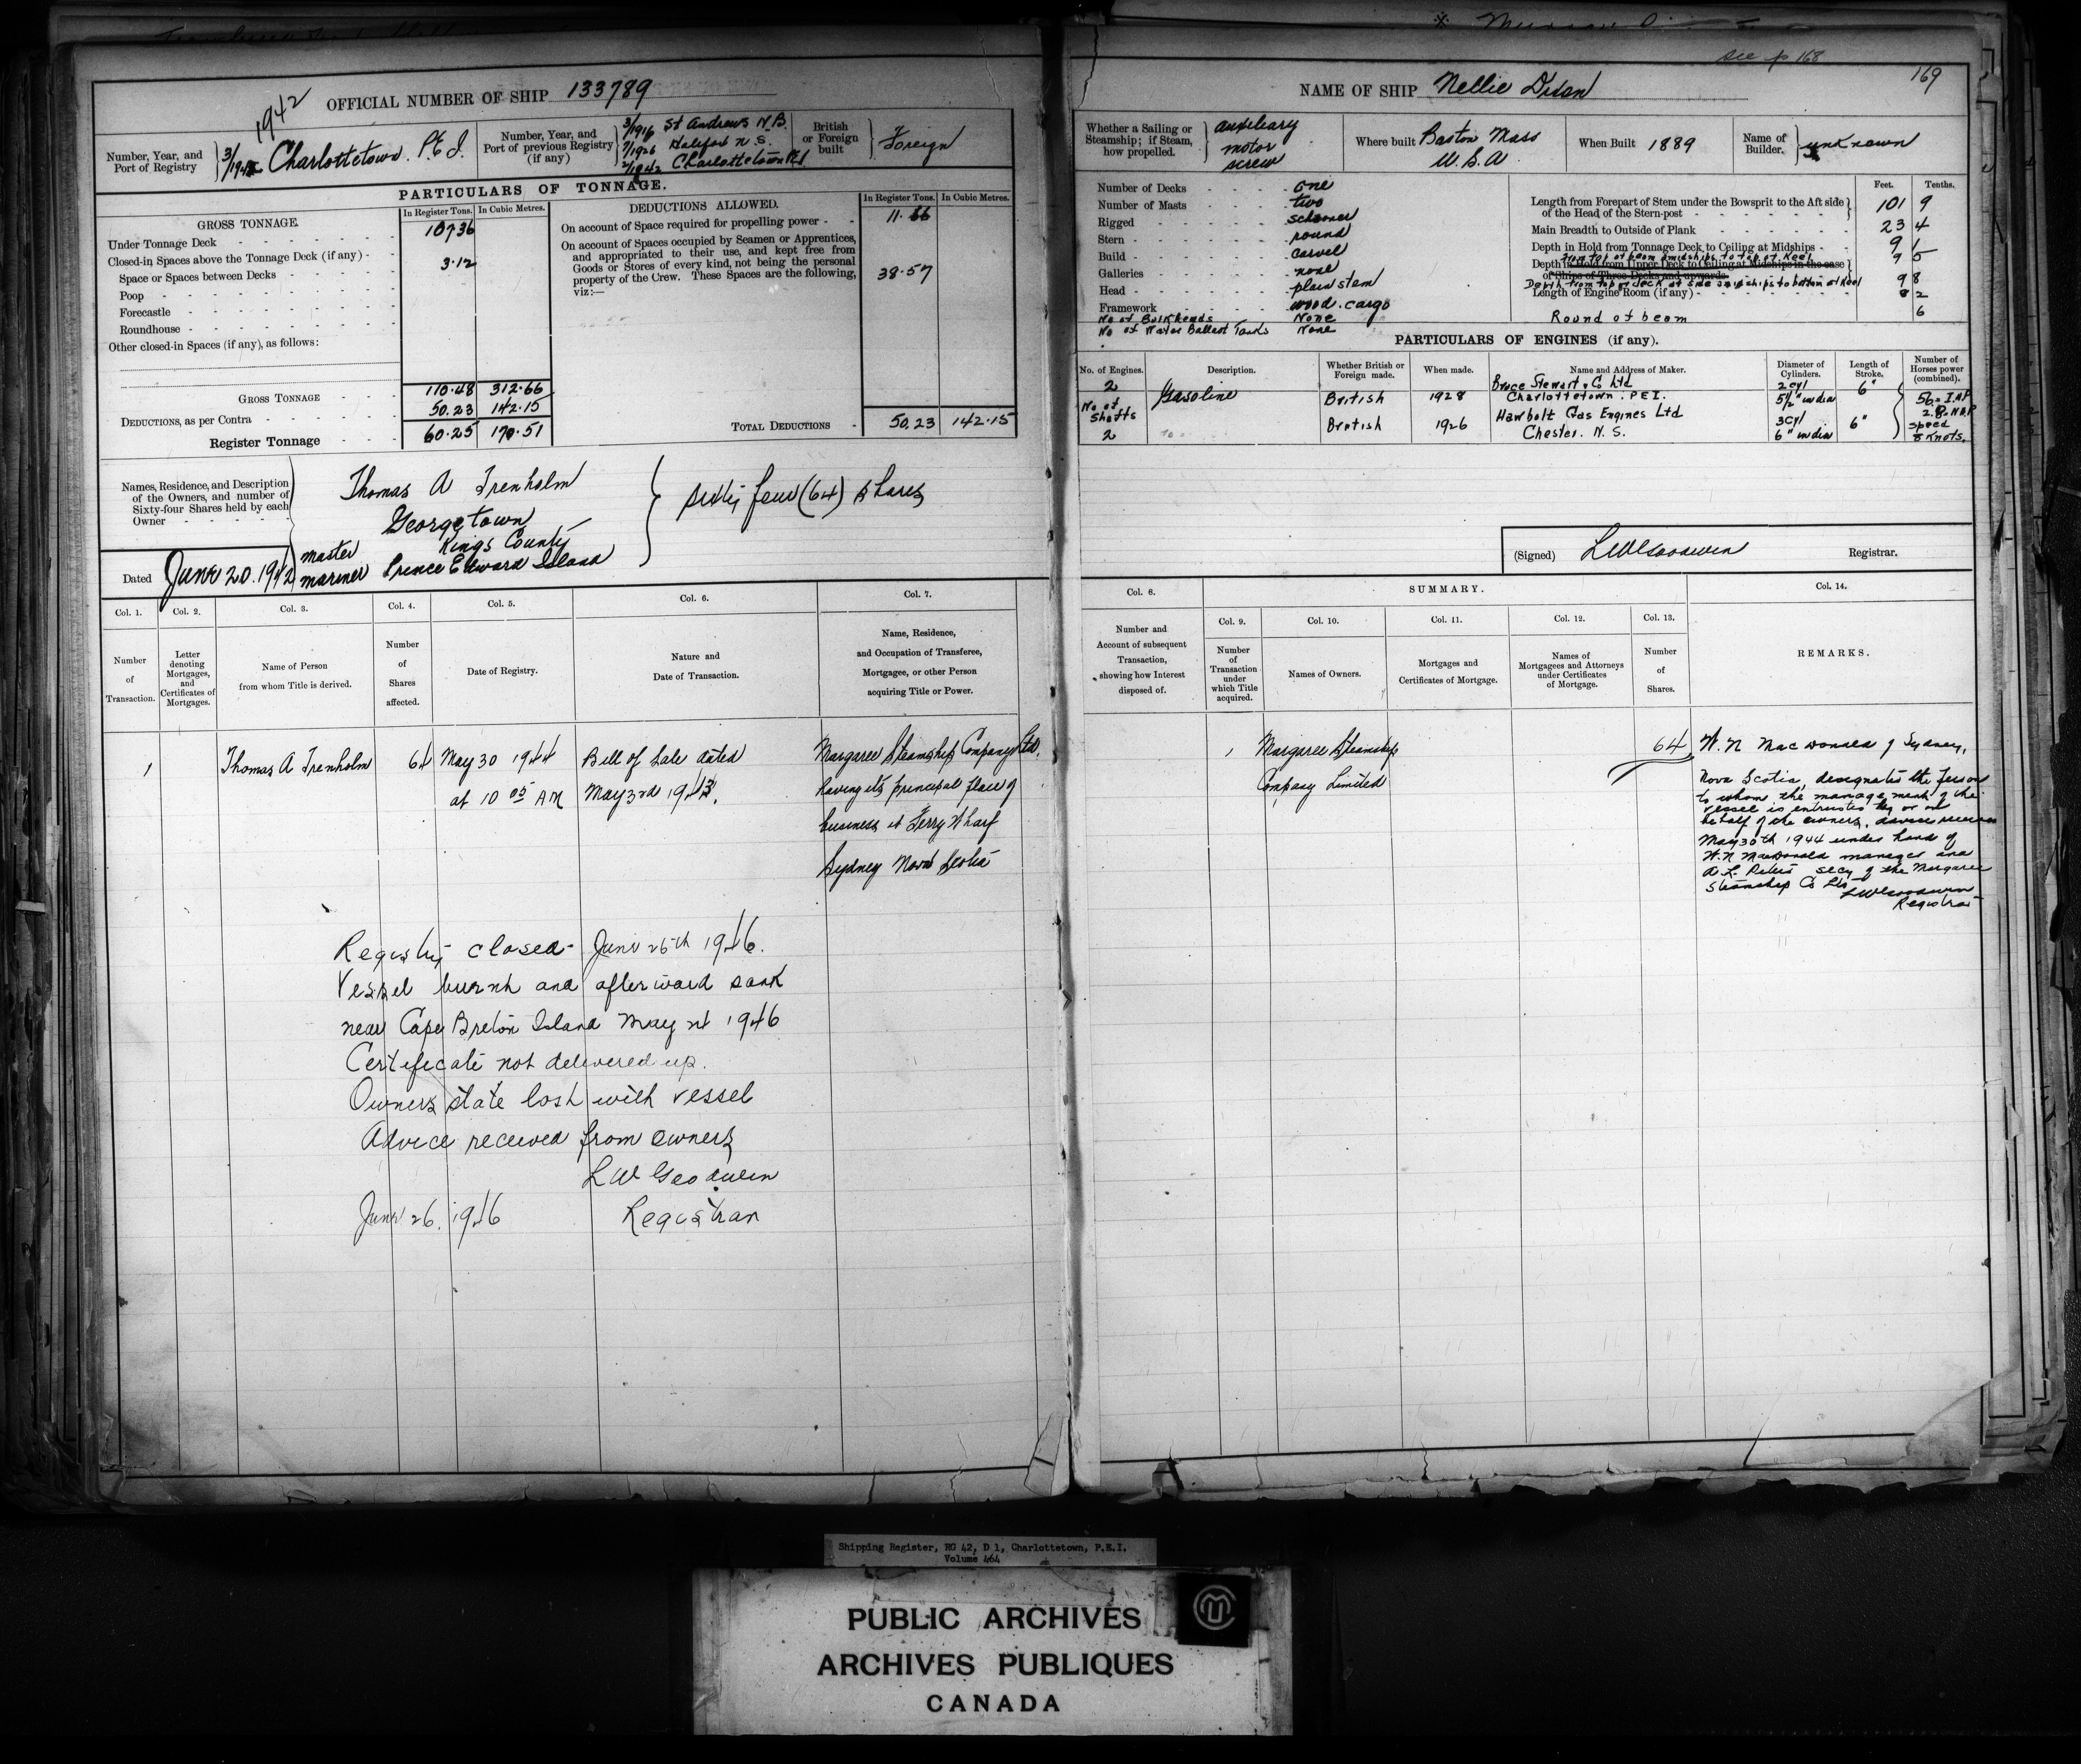 see p 168
169
OFFICIAL NUMBER OF SHIP 133789
1942
Number, Year, and Port of Registry
3/1942 Charlottetown. P.E.I.
Number, Year, and Port of previous Registry (if any)
3/1916 St Andrews N.B.
7/1926 Halifax N.S.
2/1942 Charlottetown PEI
British or Foreign built
Foreign
PARTICULARS OF TONNAGE.
GROSS TONNAGE.
In Register Tons. In Cubic Metres.
Under Tonnage Deck 107.36
Closed-in Spaces above the Tonnage Deck (if any)
Space or Spaces between Decks 3.12
Poop
Forecastle
Roundhouse
Other closed-in Spaces (if any), as follows:
GROSS TONNAGE 110.48 312.66
DEDUCTIONS, as per Contra 50.23 142.15
Register Tonnage 60.25 170.51
DEDUCTIONS ALLOWED.
In Register Tons. In Cubic Metres.
On account of Space required for propelling power 11.66
On account of Spaces occupied by Seamen or Apprentices, and appropriated to their use, and kept free from Goods or Stores of every kind, not being the personal property of the Crew. These Spaces are the following, viz:— 38.57
TOTAL DEDUCTIONS 50.23 142.15
Names, Residence, and Description of the Owners, and number of Sixty-four Shares held by each Owner
Thomas A Trenholm
Georgetown
Kings County
master mariner Prince Edward Island
sixty four (64) shares
Dated June 20. 1942
Col. 1. Col. 2. Col. 3. Col. 4. Col. 5. Col. 6. Col. 7.
Number of Transaction.
Letter denoting Mortgages, and Certificates of Mortgages.
Name of Person from whom Title is derived.
Number of Shares affected.
Date of Registry.
Nature and Date of Transaction.
Name, Residence, and Occupation of Transferee, Mortgagee, or other Person acquiring Title or Power.
1
Thomas A Trenholm
64
May 30 1944
at 10 05 AM
Bill of Sale dated
May 3rd 1943.
Margaree Steamship Company Ltd.
having its principal place of
business at Ferry Wharf
Sydney Nova Scotia
Registry closed - June 26th 1946.
Vessel burnt and afterward sank
near Cape Breton Island May 1946
Certificate not delivered up.
Owners state lost with vessel
Advice received from owners
L W Goodwin
June 26. 1946 Registrar
NAME OF SHIP Nellie Dixon
Whether a Sailing or Steamship; if Steam, how propelled.
auxiliary
motor
screw
Where built Boston Mass
U.S.A.
When Built 1889
Name of Builder.
unknown
Number of Decks one
Number of Masts two
Rigged schooner
Stern round
Build carvel
Galleries none
Head plain stem
Framework wood. cargo
No of Bulkheads None
No of Water Ballast Tanks None
Feet. Tenths.
Length from Forepart of Stem under the Bowsprit to the Aft side of the Head of the Stern-post 101 9
Main Breadth to Outside of Plank 23 4
Depth in Hold from Tonnage Deck to Ceiling at Midships 9 1
from top of beam amidships to top of Keel 9 5
Depth in Hold from Upper Deck to Ceiling at Midships in the case of Ships of Three Decks and upwards
Depth from top of deck at side amidships to bottom of Keel 9 8
Length of Engine Room (if any) 2
Round of beam 6
PARTICULARS OF ENGINES (if any).
No. of Engines. Description. Whether British or Foreign made. When made. Name and Address of Maker. Diameter of Cylinders. Length of Stroke. Number of Horses power (combined).
2 Gasoline British 1928 Bruce Stewart & Co Ltd
Charlottetown. P.E.I.
2 cyl
5½" in dia
6"
56 = I.H.P
2.8 = N.H.P
No of Shafts
2
British 1926 Hawbolt Gas Engines Ltd
Chester. N.S.
3 cyl
6" in dia
6"
speed
8 knots.
(Signed) LW Goodwin Registrar.
Col. 8. SUMMARY. Col. 14.
Col. 9. Col. 10. Col. 11. Col. 12. Col. 13.
Number and Account of subsequent Transaction, showing how Interest disposed of.
Number of Transaction under which Title acquired.
Names of Owners.
Mortgages and Certificates of Mortgage.
Names of Mortgagees and Attorneys under Certificates of Mortgage.
Number of Shares.
REMARKS.
1
Margaree Steamship
Company Limited
64
W. N MacDonald of Sydney,
Nova Scotia, designated the person
to whom the management of the
vessel is entrusted by or on
behalf of the owners. advice received
May 30th 1944 under hand of
W. N MacDonald manager and
A. L. Peters secy of the Margaree
Steamship Co Ltd
LW Goodwin
Registrar
Shipping Register, RG 42, D 1, Charlottetown, P.E.I.
Volume 464
PUBLIC ARCHIVES
ARCHIVES PUBLIQUES
CANADA